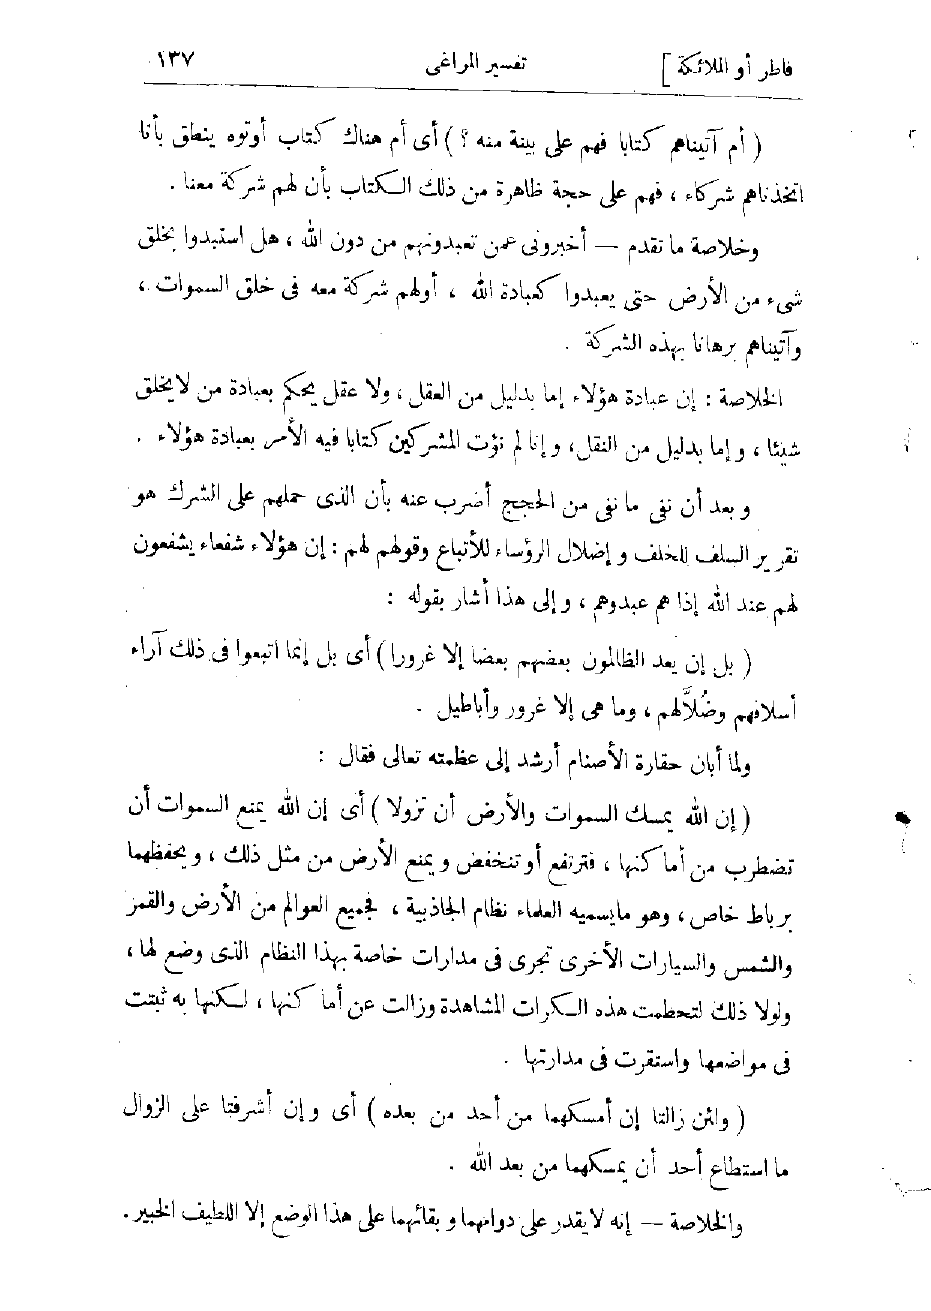 فاطر أو الملائكة ] تفسير المراغى ١٣٧
( أم آتيناهم كتابا فهم على بينة منه ؟ ) أى أم هناك كتاب أوتوه ينطق بأنا
اتخذناهم شركاء ، فهم على حجة ظاهرة من ذلك الكتاب بأن لهم شركة معنا .
وخلاصة ما تقدم — أخبرونى عمن تعبدونهم من دون الله ، هل استبدوا بخلق
شىء من الأرض حتى يعبدوا كعبادة الله ، أولهم شركة معه فى خلق السموات ،
وآتيناهم برهانا بهذه الشركة .
الخلاصة : إن عبادة هؤلاء إما بدليل من العقل ، ولا عقل يحكم بعبادة من لا يخلق
شيئا ، وإما بدليل من النقل ، وإنا لم نؤت المشركين كتابا فيه الأمر بعبادة هؤلاء .
وبعد أن نفى ما نفى من الحجج أضرب عنه بأن الذى حملهم على الشرك هو
تقرير السلف للخلف وإضلال الرؤساء للأتباع وقولهم لهم : إن هؤلاء شفعاء يشفعون
لهم عند الله إذا هم عبدوهم ، وإلى هذا أشار بقوله :
( بل إن يعد الظالمون بعضهم بعضا إلا غرورا ) أى بل إنما اتبعوا فى ذلك آراء
أسلافهم وضُلاَّلهم ، وما هى إلا غرور وأباطيل .
ولما أبان حقارة الأصنام أرشد إلى عظمته تعالى فقال :
( إن الله يمسك السموات والأرض أن تزولا ) أى إن الله يمنع السموات أن
تضطرب من أماكنها ، فترتفع أو تنخفض ويمنع الأرض من مثل ذلك ، ويحفظهما
برباط خاص ، وهو ما يسميه العلماء نظام الجاذبية ، فجميع العوالم من الأرض والقمر
والشمس والسيارات الأخرى تجرى فى مدارات خاصة بهذا النظام الذى وضع لها ،
ولولا ذلك لتحطمت هذه الكرات المشاهدة وزالت عن أماكنها ، لكنها به ثبتت
فى مواضعها واستقرت فى مدارتها .
( ولئن زالتا إن أمسكهما من أحد من بعده ) أى وإن أشرفتا على الزوال
ما استطاع أحد أن يمسكهما من بعد الله .
والخلاصة — إنه لا يقدر على دوامهما وبقائهما على هذا الوضع إلا اللطيف الخبير .